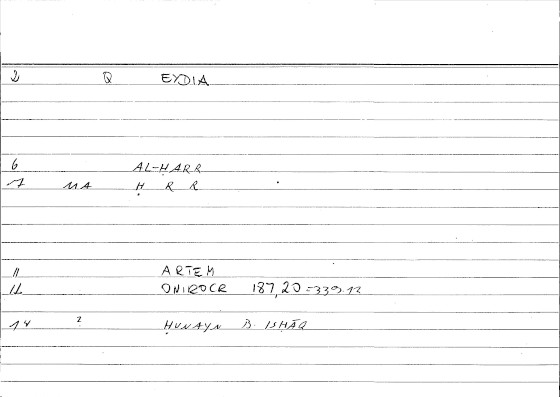 2 Q EYDIA
6 AL-ḤARR
7 MA Ḥ R R
11 ARTEM
12 ONIROCR 187,20 = 339.12
14 2 ḤUNAYN B ISḤĀQ